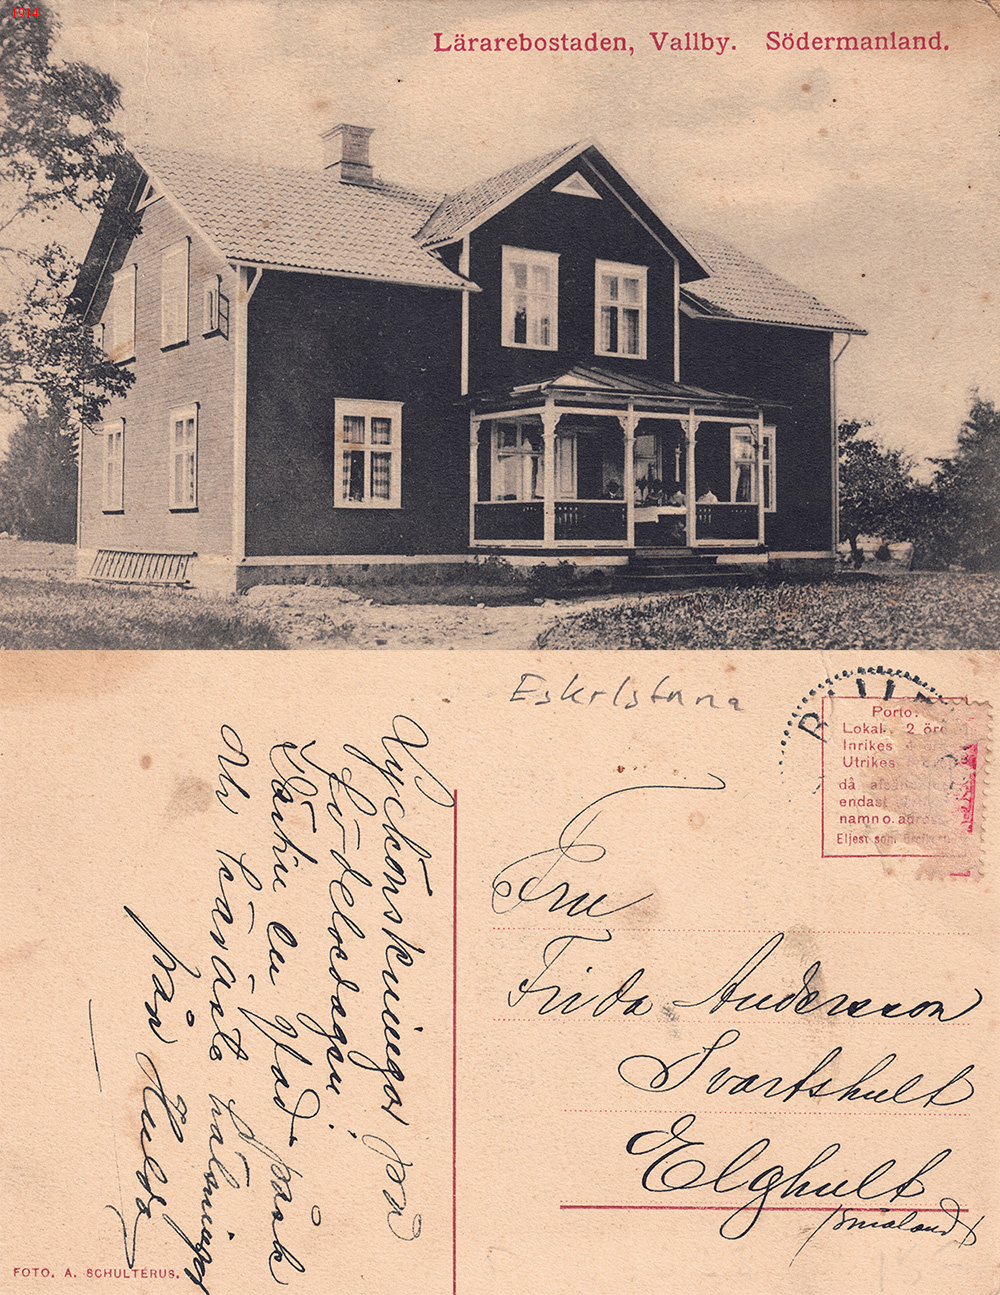 1914
Lärarebostaden, Vallby. Södermanland.
Eskilstuna
Porto.
Lokal. 2 öre
Inrikes
Utrikes
då
endast
namn o. adress
Eljest som
Lyckönskningar på
födelsedagen!
Önskar en glad påsk
och käraste hälsningar
från Hulda
Fru
Frida Andersson
Svartshult
Elghult
(Småland)
FOTO. A. SCHULTERUS.